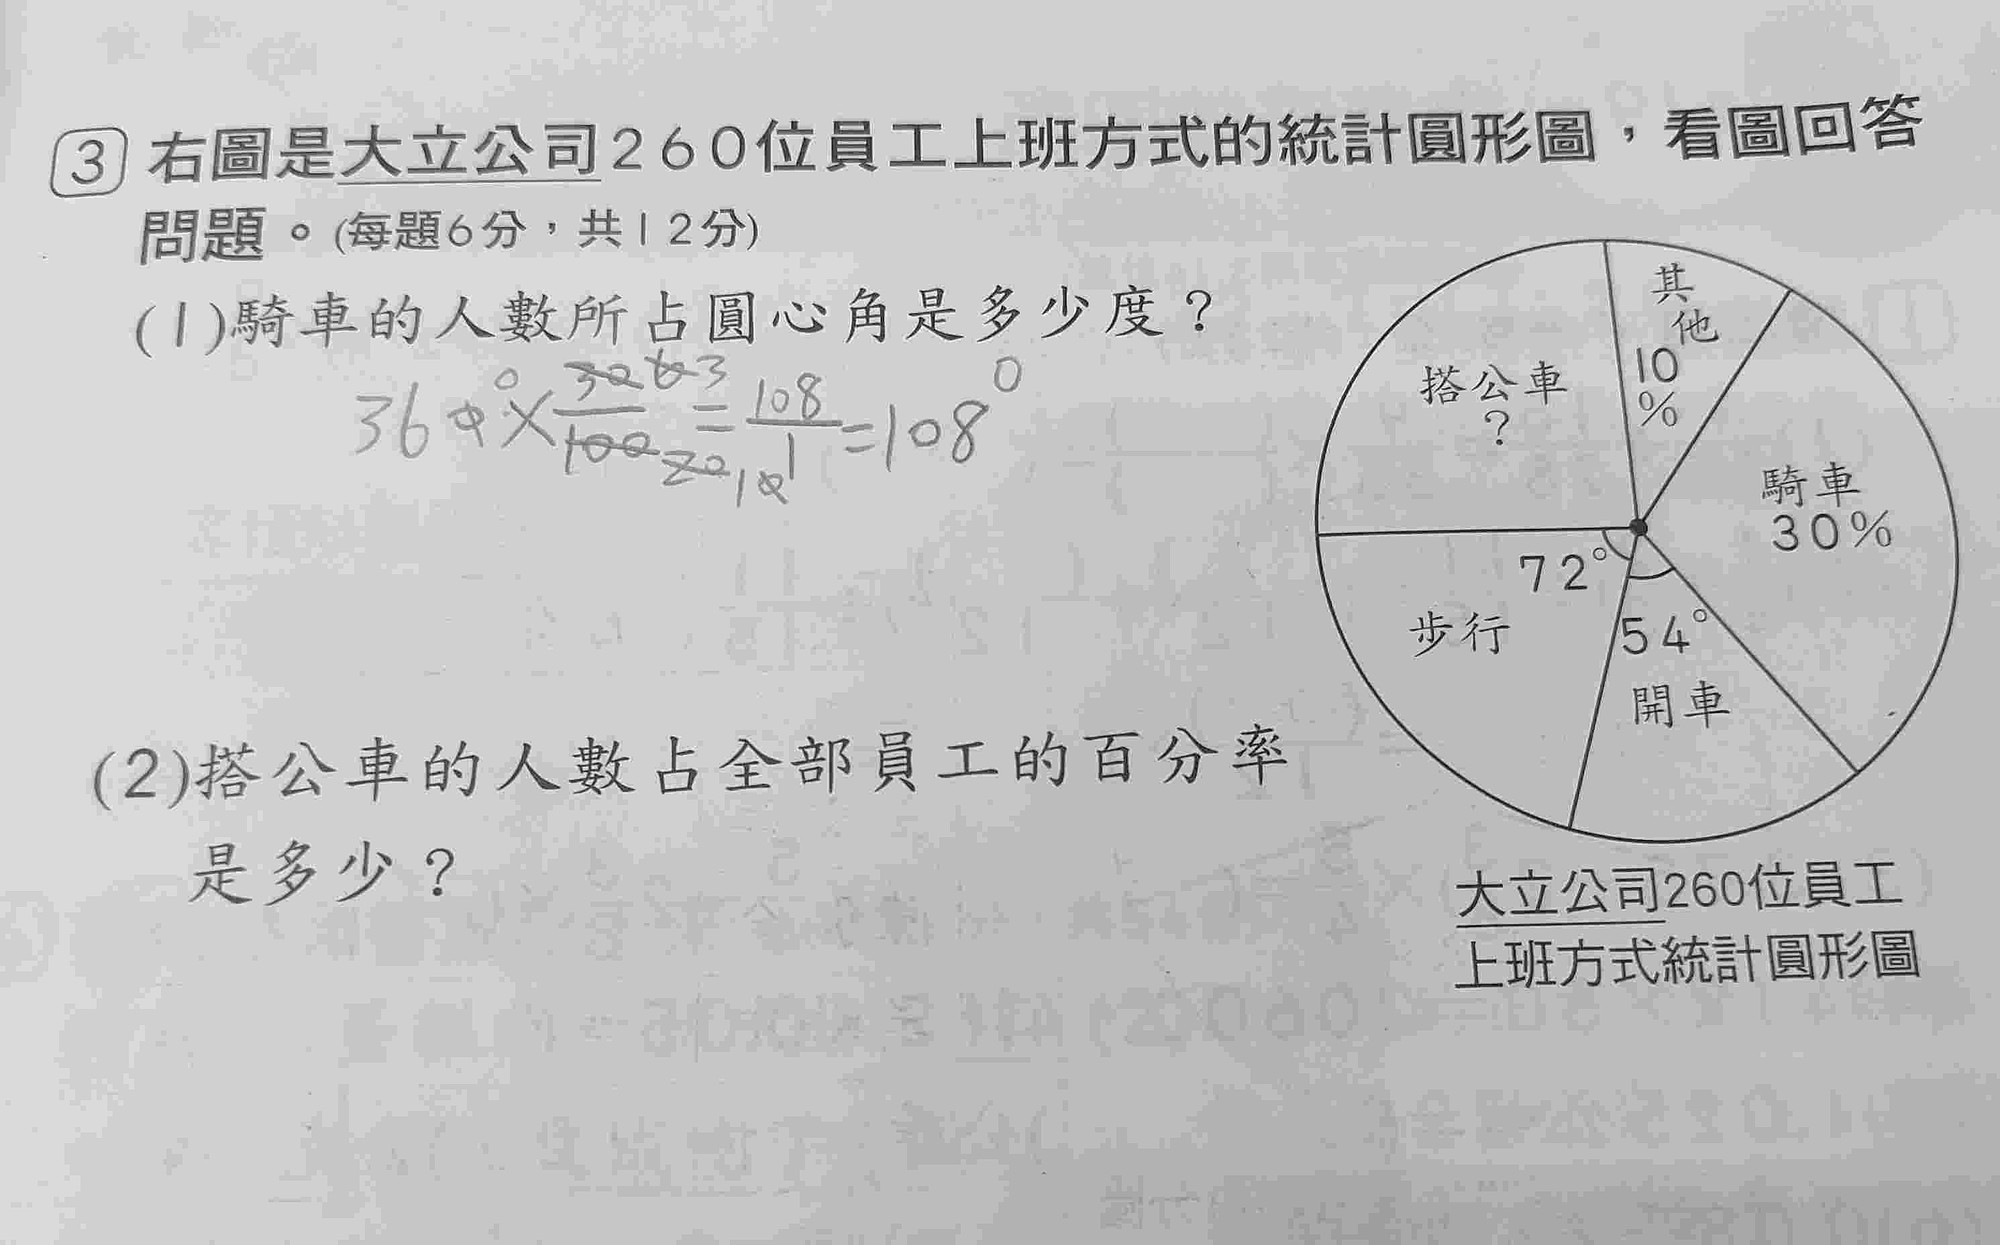 3 右圖是大立公司260位員工上班方式的統計圓形圖，看圖回答
問題。(每題6分，共12分)
(1)騎車的人數所占圓心角是多少度？
360°×30/100=108/1=108°
(2)搭公車的人數占全部員工的百分率
是多少？
其他
10
%
搭公車
?
騎車
30%
72°
步行
54°
開車
大立公司260位員工
上班方式統計圓形圖